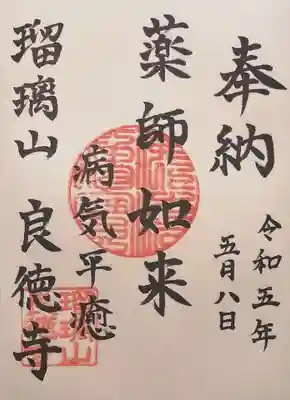 奉納
令和五年
五月八日
薬師如来
病気平癒
瑠璃山 良徳寺